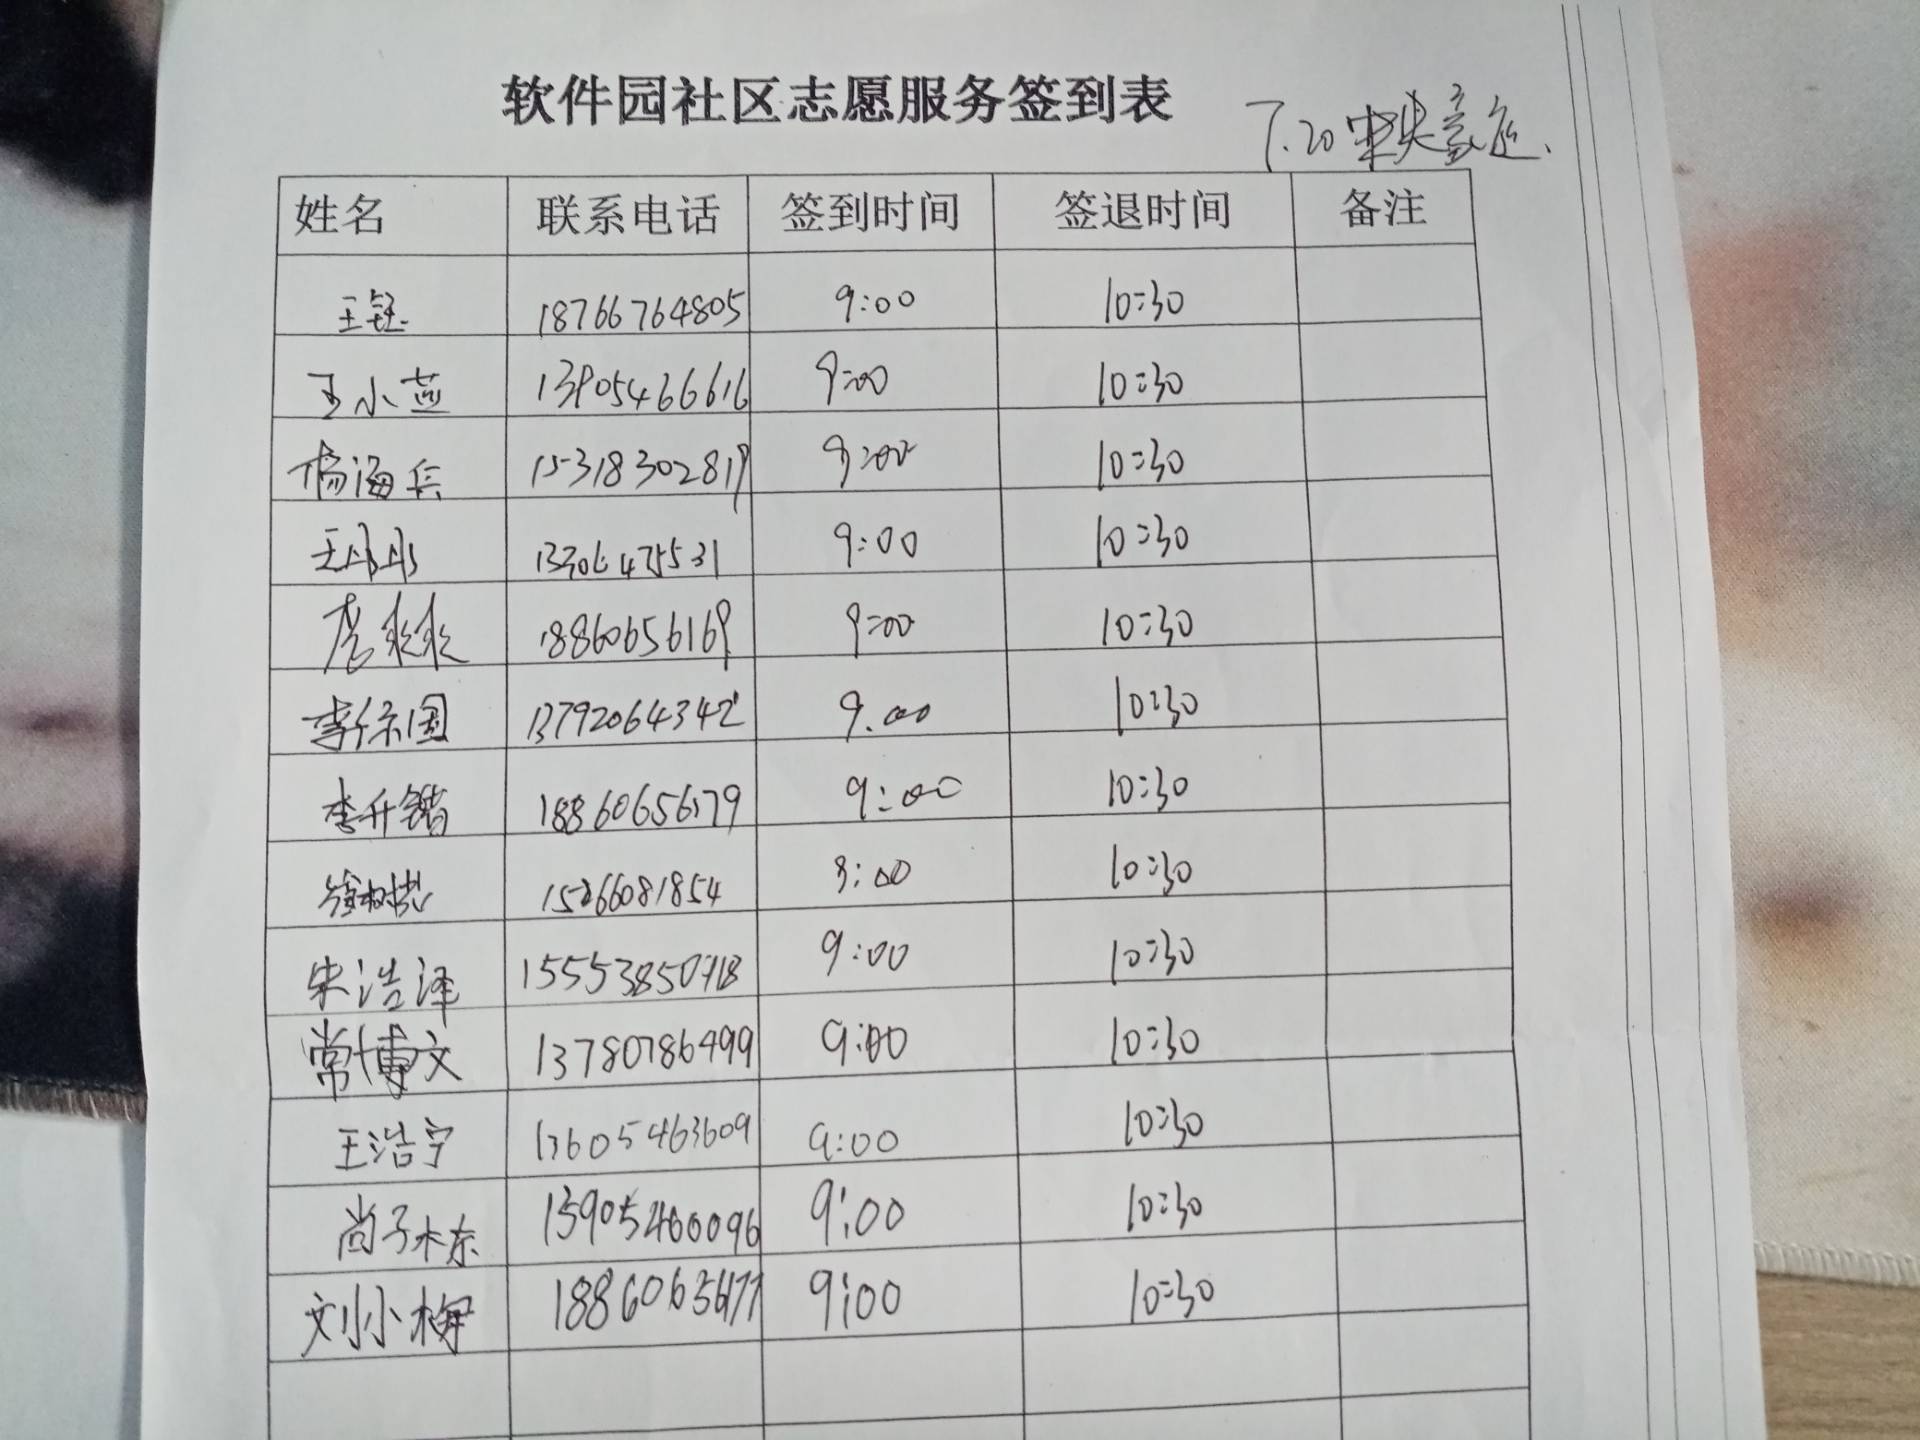 软件园社区志愿服务签到表
7.20 中央豪庭.
姓名 联系电话 签到时间 签退时间 备注
王钰 18766764805 9:00 10:30
王小燕 13905466616 9:00 10:30
杨海兵 15318302819 9:00 10:30
王丹丹 9:00 10:30
18860656169 9:00 10:30
李保国 13792064342 9.00 10:30
李升锴 18860656179 9:00 10:30
15266081854 10:30
朱浩泽 15553850718 9:00 10:30
常博文 13780786499 9:00 10:30
王浩宇 13605463609 9:00 10:30
尚子木东 13905460096 9:00 10:30
刘小梅 18860656177 9:00 10:30